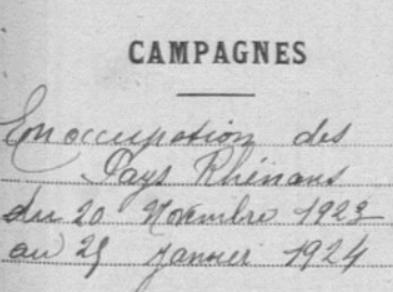 CAMPAGNES
En occupation des
Pays Rhénans
du 20 Novembre 1923
au 25 Janvier 1924